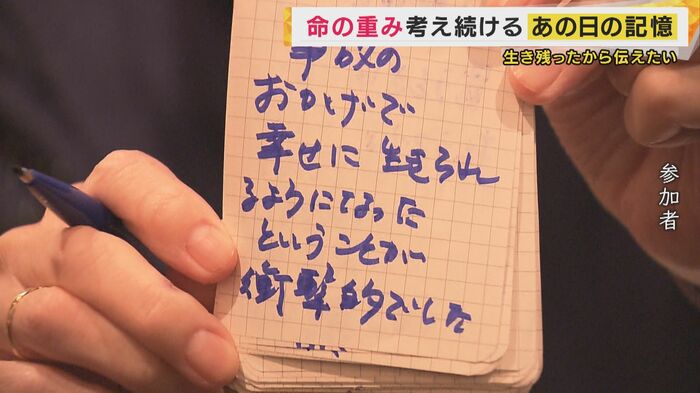 命の重み考え続ける あの日の記憶
生き残ったから伝えたい
参加者
事故の
おかげで
幸せに 生きられ
るようになった
ということが
衝撃的でした